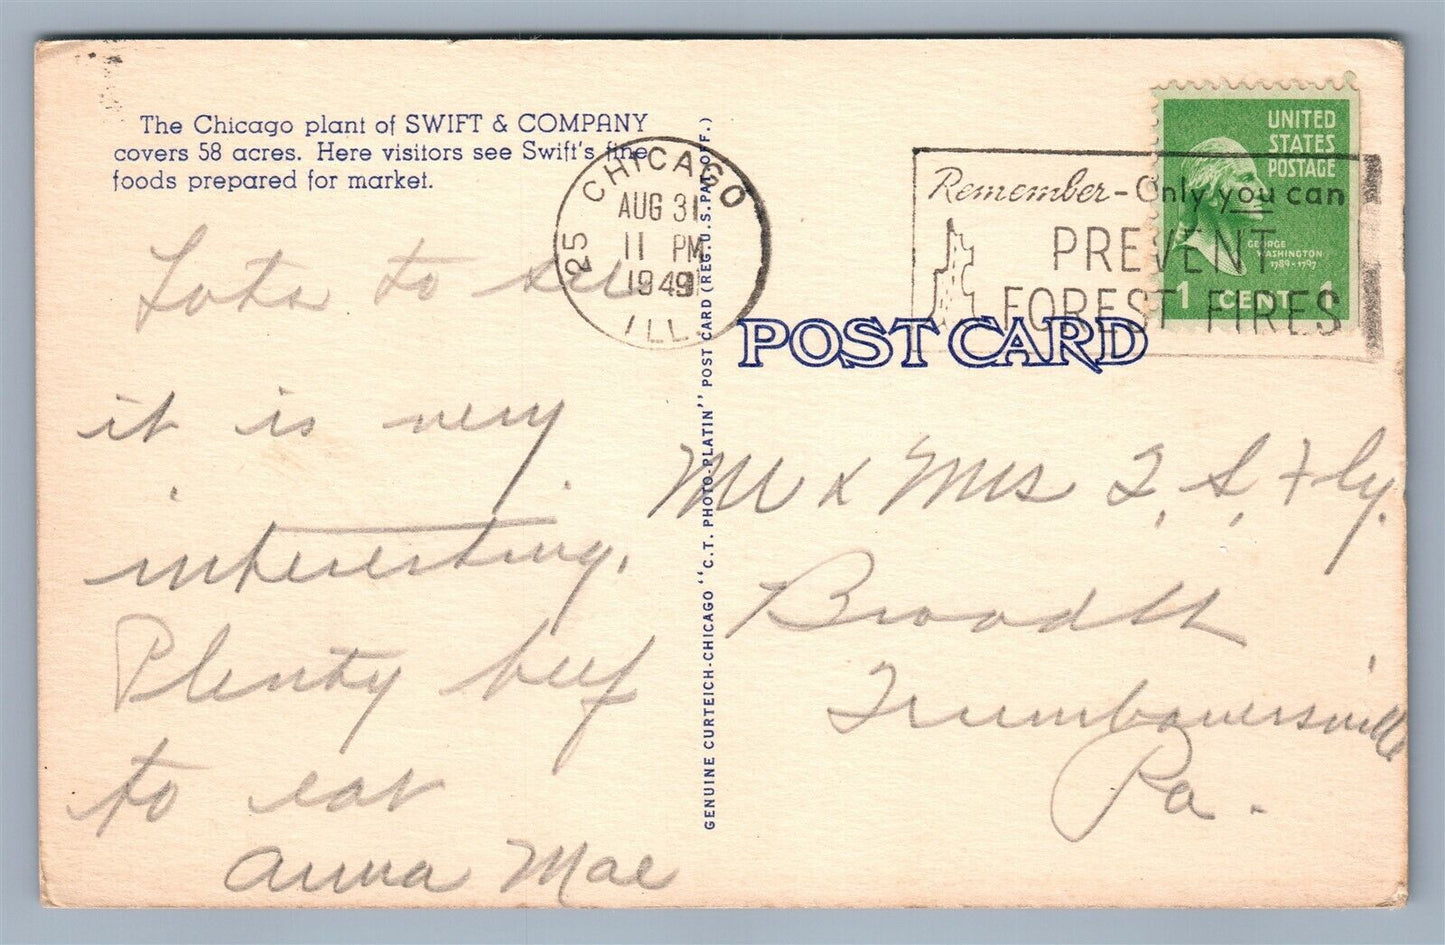 The Chicago plant of SWIFT & COMPANY
covers 58 acres. Here visitors see Swift's fine
foods prepared for market.
CHICAGO
25
AUG 31
11 PM
1949
ILL.
Remember-Only you can
PREVENT
FOREST FIRES
UNITED
STATES
POSTAGE
GEORGE
WASHINGTON
1789-1797
1 CENT 1
POST CARD
GENUINE CURTEICH-CHICAGO "C.T. PHOTO-PLATIN" POST CARD (REG. U.S. PAT. OFF.)
Lots to see
it is very
interesting.
Plenty beef
to eat
Anna Mae
Mr & Mrs
Trumbauersville
Pa.